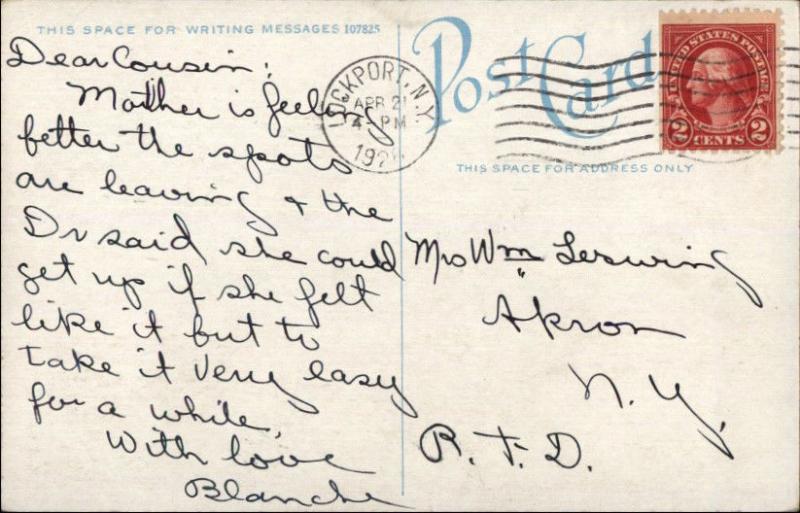 THIS SPACE FOR WRITING MESSAGES 107825
Dear Cousin;
Mother is feeling
better the spots
are leaving & the
Dr said she could
get up if she felt
like it but to
take it very easy
for a while,
With love
Blanche
Post Card
LOCKPORT, N.Y.
APR 21
4 PM
UNITED STATES POSTAGE
2 CENTS 2
THIS SPACE FOR ADDRESS ONLY
Mrs Wm
Akron
N.Y.
R.F.D.